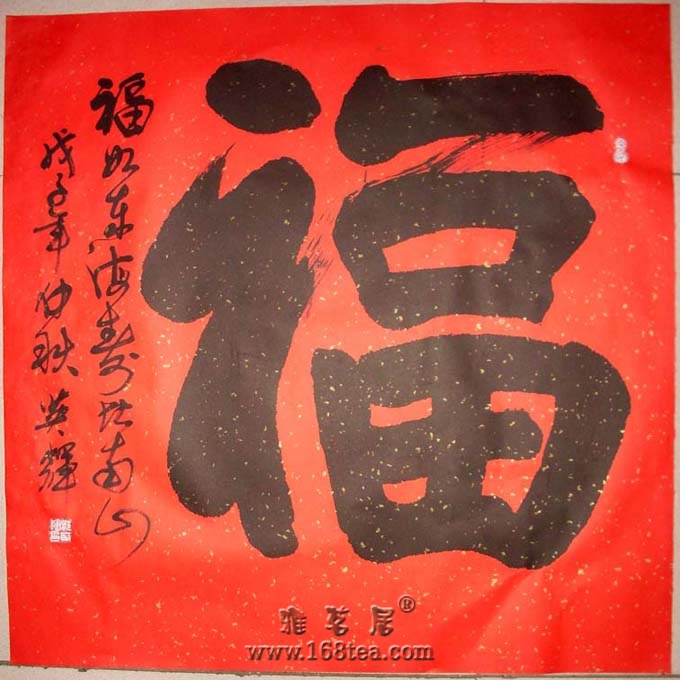 福
福如东海寿比南山
戊子年仲秋 英輝
雅茗居®
www.168tea.com